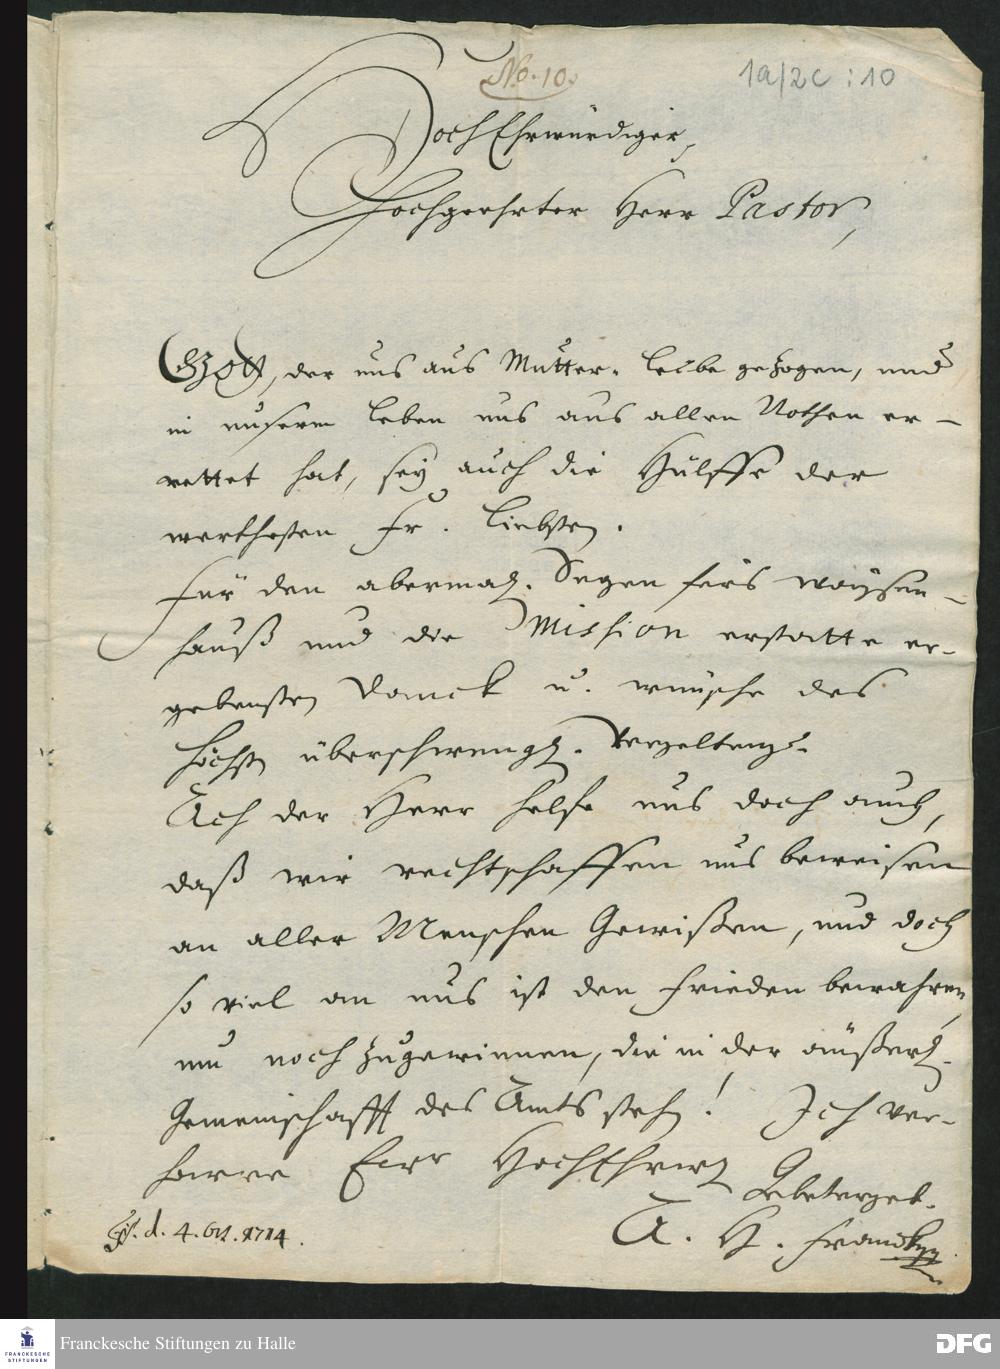 No. 10.
1a/2c : 10
HochEhrwürdiger,
Hochgeehrter Herr Pastor,
GOtt, der uns aus Mutter-Leibe gezogen, und
in unserm Leben uns aus allen Nöthen er-
rettet hat, sey auch die Hülffe der
werthesten Fr. Liebsten.
Für den abermal. Segen fürs Waysen-
hauß und die Mission erstatte er-
gebensten Danck u. wünsche des
Höchsten überschwengl. Vergeltung.
Ach der Herr helfe uns doch auch,
daß wir rechtschaffen uns beweisen
an aller Menschen Gewißen, und doch
so viel an uns ist den Frieden bewahren,
um noch zugewinnen, die in der äußerl.
Gemeinschafft des Amts stehen! Ich ver-
harre Ewr HochEhrw
Gebetergeb.
d. 4. 1714.
A. H. Francke
Franckesche Stiftungen zu Halle
FRANCKESCHE
STIFTUNGEN
DFG